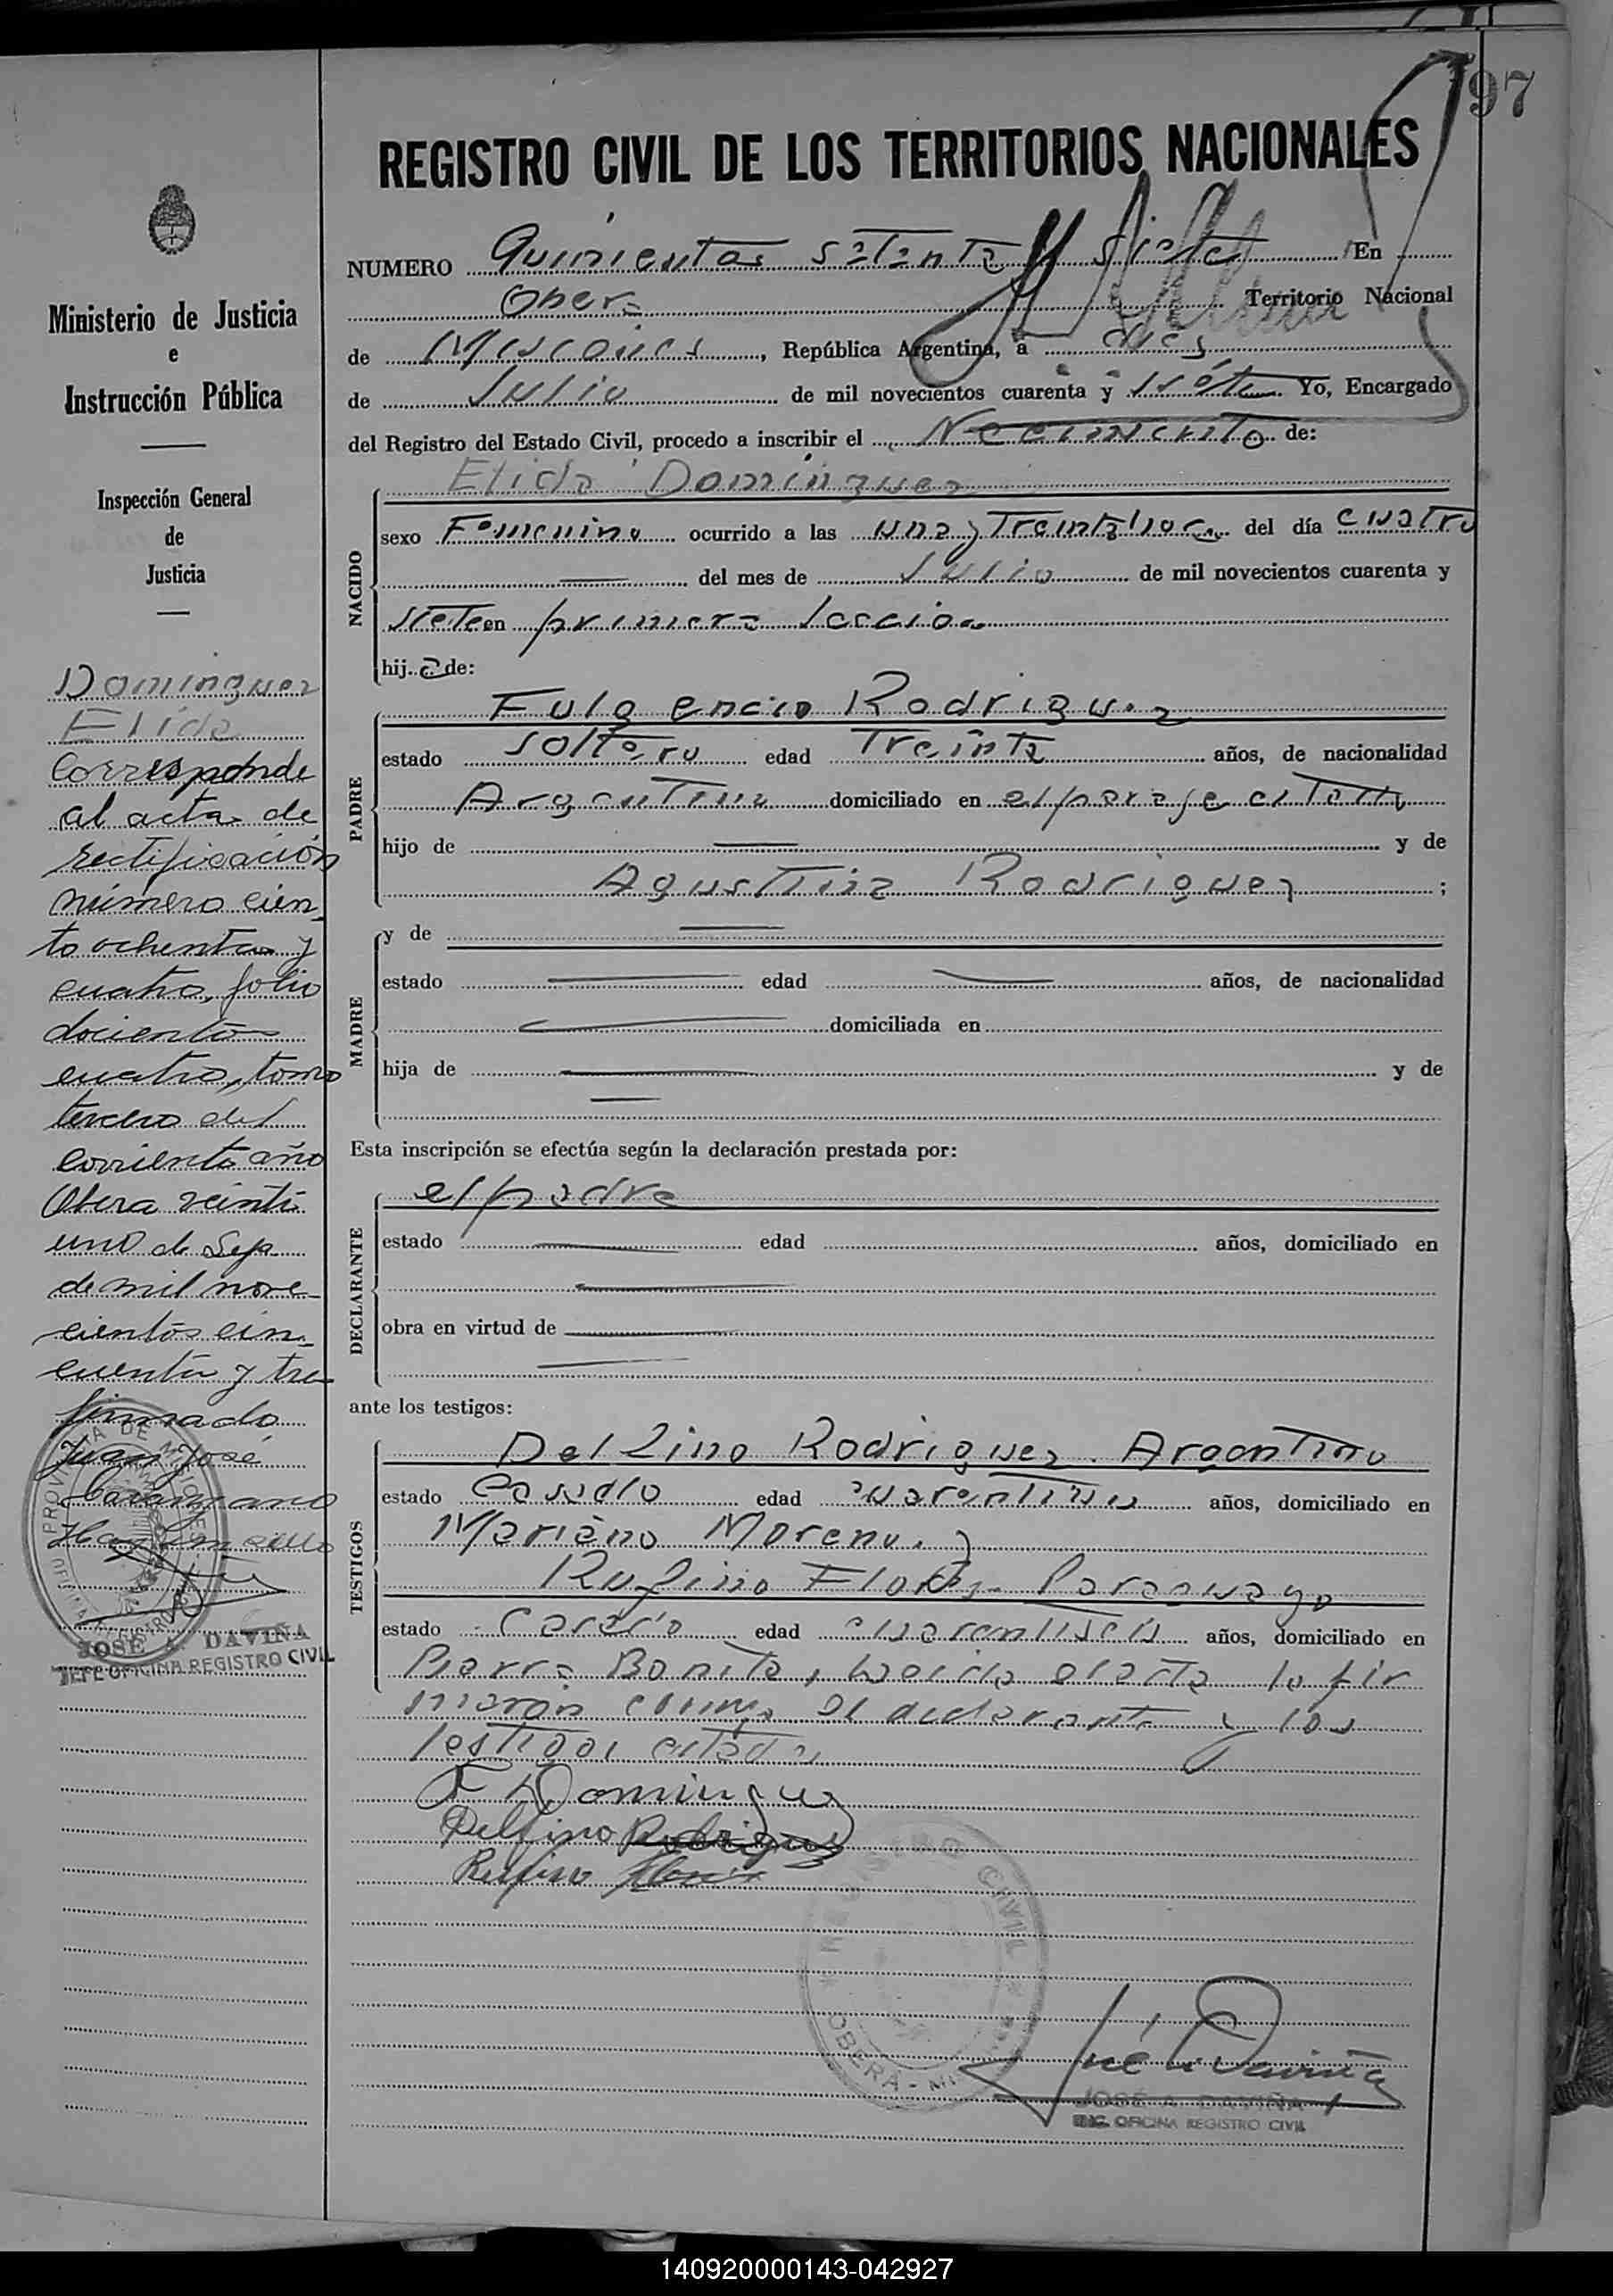 97
REGISTRO CIVIL DE LOS TERRITORIOS NACIONALES
NUMERO Quinientos setenta y siete En
Obera Territorio Nacional
de Misiones, República Argentina, a diez
de Julio de mil novecientos cuarenta y siete Yo, Encargado
del Registro del Estado Civil, procedo a inscribir el Nacimiento de:
NACIDO
Elida Dominguez
sexo Femenino ocurrido a las una y treinta horas del día cuatro
del mes de Julio de mil novecientos cuarenta y
siete en primera seccion
hija de:
PADRE
Fulgencio Rodriguez
estado soltero edad Treinta años, de nacionalidad
Argentino domiciliado en el paraje citado
hijo de y de
Agustina Rodriguez ;
MADRE
y de
estado edad años, de nacionalidad
domiciliada en
hija de y de
Esta inscripción se efectúa según la declaración prestada por:
DECLARANTE
el padre
estado edad años, domiciliado en
obra en virtud de
ante los testigos:
TESTIGOS
Delfino Rodriguez Argentino
estado Casado edad años, domiciliado en
Mariano Moreno y
Rufino Flores Paraguayo
estado edad cuarentiseis años, domiciliado en
Bonita, leida el acta la fir
maron como el declarante y los
testigos citados
F Dominguez
Delfino Rodriguez
Rufino
REGISTRO CIVIL
OBERA - MI
José A Daviña
JOSÉ A. DAVIÑA
ENC. OFICINA REGISTRO CIVIL
Ministerio de Justicia
e
Instrucción Pública
Inspección General
de
Justicia
Dominguez
Elida
Corresponde
al acta de
rectificación
número cien
to ochenta y
cuatro, folio
docientos
cuatro, tomo
tercero del
corriente año
Obera veinti
uno de Sep
de mil nove
cientos cin
cuenta y tres
firmado
Juan José
JOSE A. DAVIÑA
JEFE OFICINA REGISTRO CIVIL
140920000143-042927